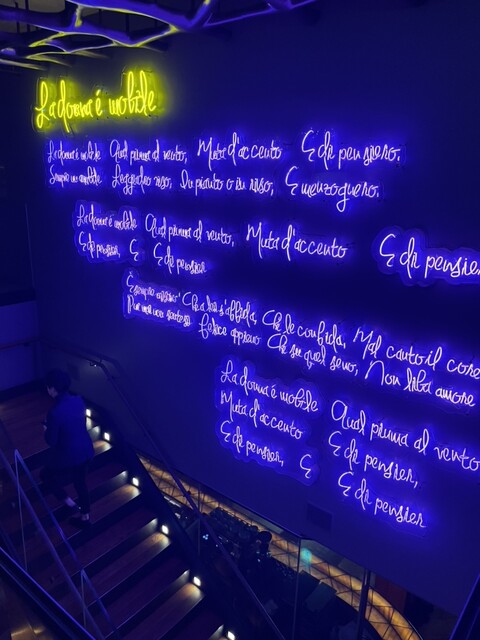 La donna é mobile
La donna é mobile Qual piuma al vento, Muta d'accento E di pensiero.
Sempre un amabile Leggiadro viso, In pianto o in riso, E menzognero.
La donna é mobile Qual piuma al vento, Muta d'accento E di pensier
E di pensier, E E di pensier
E sempre misero Chi a lei s'affida, Chi le confida, Mal cauto il core
Pur mai non sentesi Felice appieno Chi su quel seno, Non liba amore
La donna é mobile Qual piuma al vento
Muta d'accento E di pensier,
E di pensier, E E di pensier